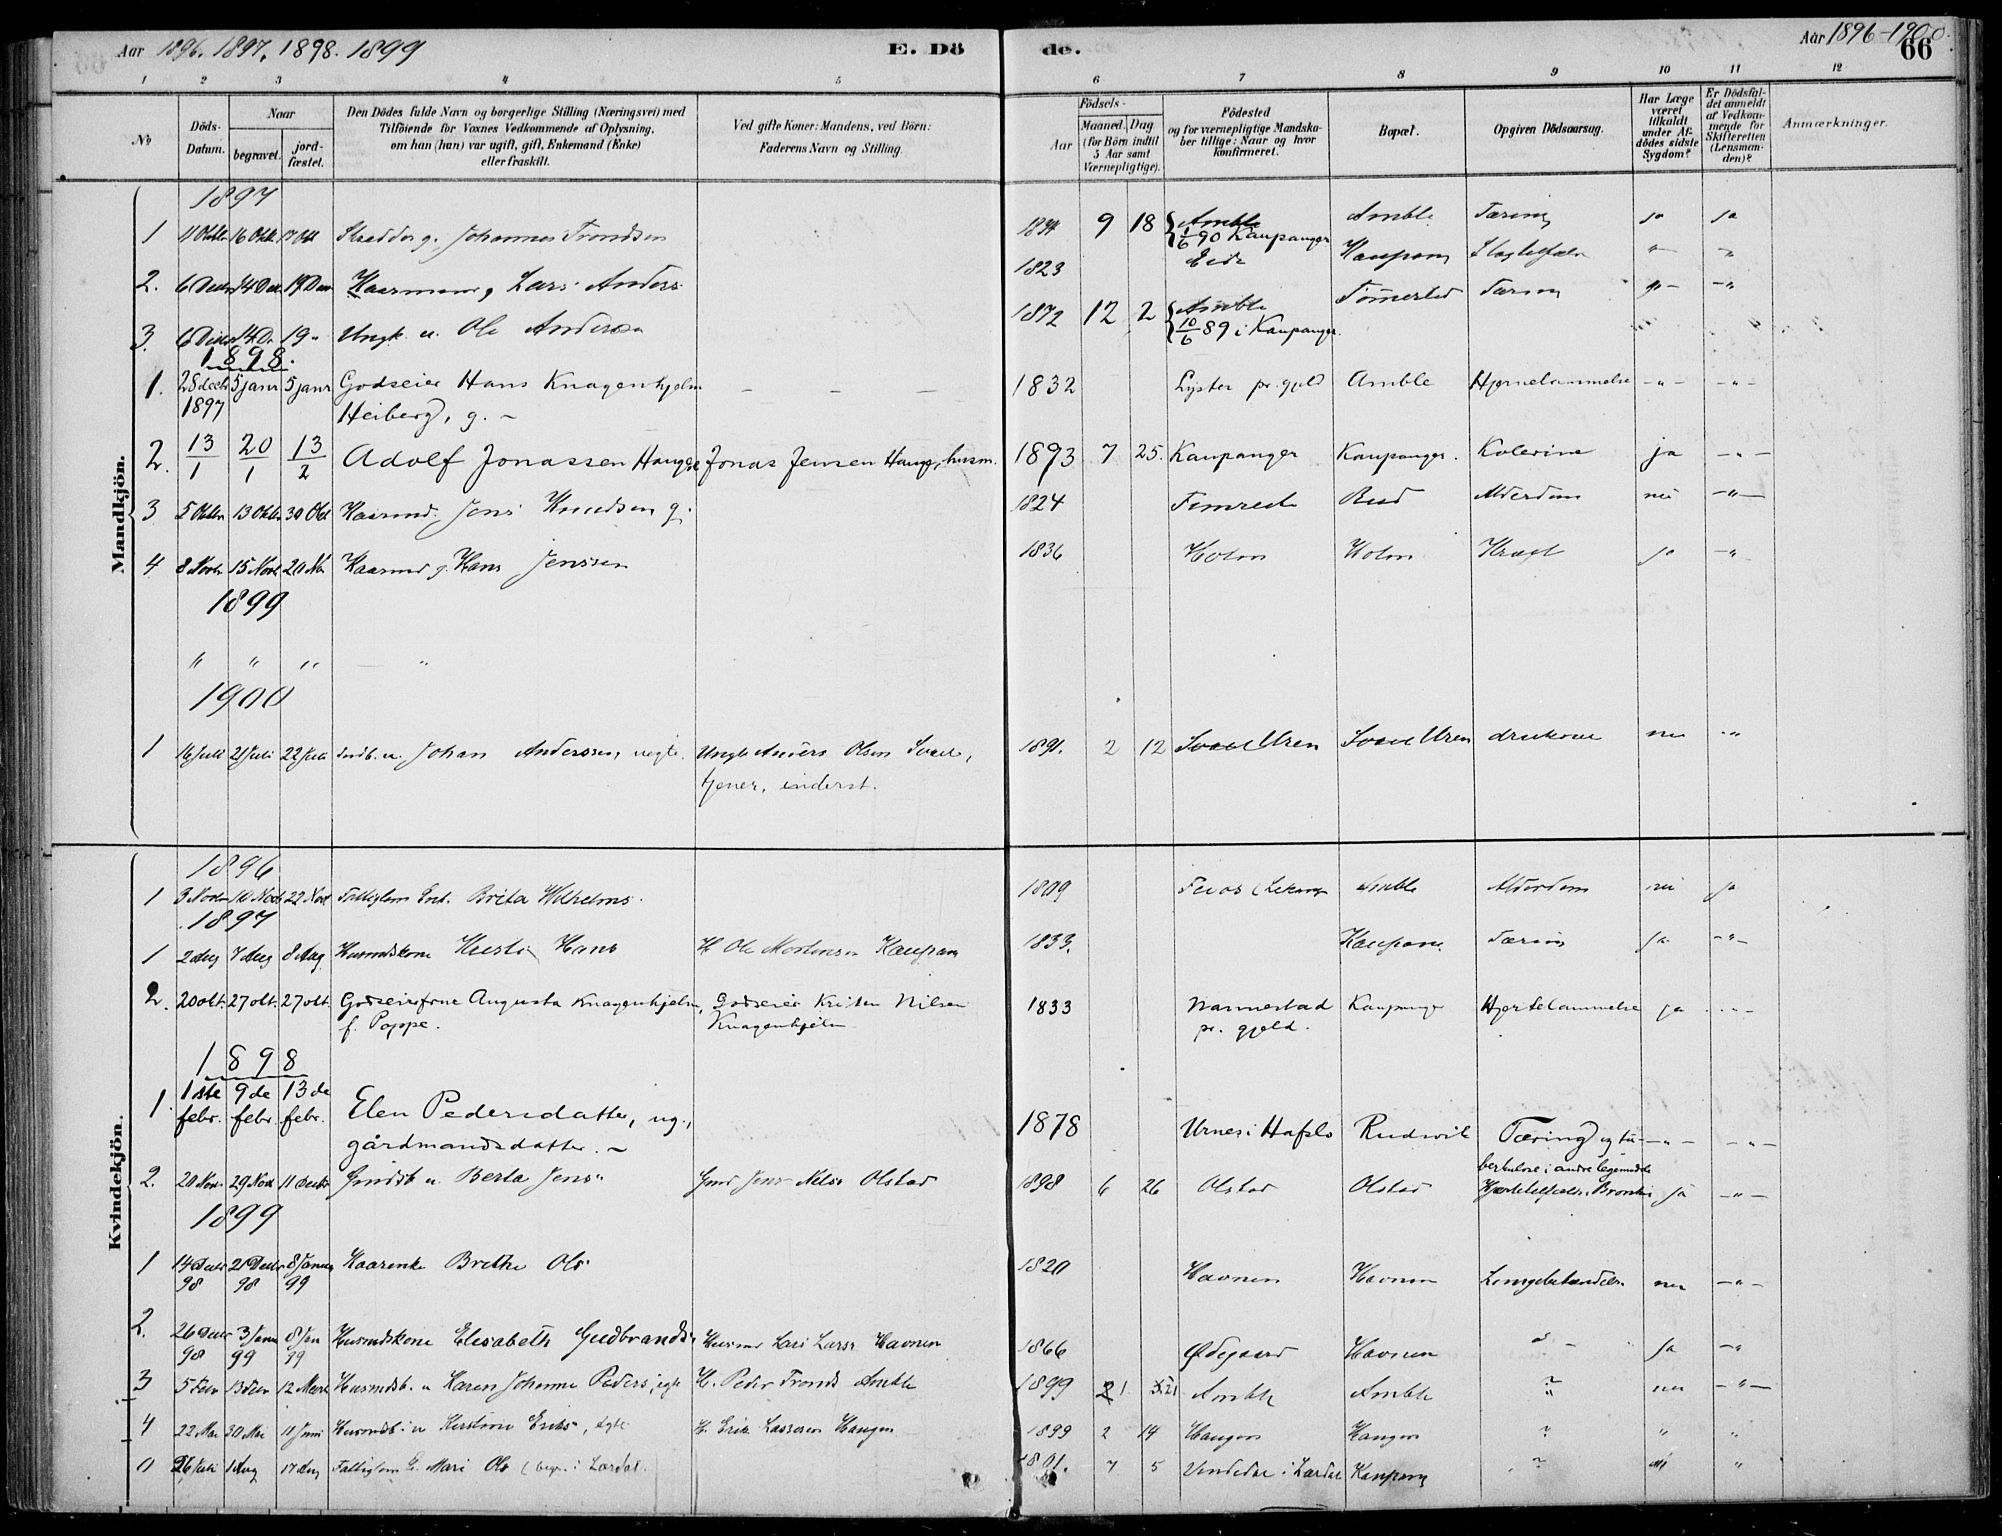 Aar 1896. 1897. 1898. 1899 E. Dö de. Aar 1896-1900.
66
1 2 3 4 5 6 7 8 9 10 11 12
No
Döds-Datum.
Naar
begravet.
jord-fæstet.
Den Dödes fulde Navn og borgerlige Stilling (Næringsvei) med
Tilföiende for Voxnes Vedkommende af Oplysning,
om han (hun) var ugift, gift, Enkemand (Enke)
eller fraskilt.
Ved gifte Koner: Mandens, ved Börn:
Faderens Navn og Stilling.
Födsels-
Aar
Maaned. Dag
(for Börn indtil
5 Aar samt
Værnepligtige).
Födested
og for værnepligtige Mandska-
ber tillige: Naar og hvor
konfirmeret.
Bopæl.
Opgiven Dödsaarsag.
Har Læge
været
tilkaldt
under Af-
dödes sidste
Sygdom?
Er Dödsfal-
det anmeldt
af Vedkom-
mende for
Skifteretten
(Lensman-
den)?
Anmærkninger.
Mandkjön.
1897
1 11 Oktbr 16 Oktb 17 Okt Skrædder g. Johannes Trondsen 9 18 Amble 1/6 90 Kaupanger Amble Tæring ja ja
2. 6 Decbr 14 Dec 19 Dec Kaarmand g Lars Anders 1823 Eide Kaupang
3. 6 Decbr 14 D 19 " Ungk. u. Ole Anderssen 1872 12 2 Amble 10/6 89 i Kaupanger. Tæring
1898.
1. 28 decbr 1897 5 janr 5 janr Godseier Hans Knagenhjelm 1832 Lyster pr. gjeld Amble Hjernelammelse -"- -"-
Heiberg, g. -
2. 13/1 20/1 13/2 Adolf Jonassen Haugen Jonas Jensen Haugen, husm. 1893 7 25. Kaupanger Kaupanger. Kolerine ja -"-
3 5 Oktbr 13 Oktbr 30 Okt Kaarmd. Jens Knudsen g. 1824 Timreit Bud Alderdom nei -"-
4 8 Novbr 15 Novb 20 No Kaarmd g. Hans Jenssen 1836 Holm Holm Kræft ja -"-
1899
" " " "
1900
1 16 Juli 21 Juli 22 Juli Indb. u. Johan Anderssen, uegte. Ungk. Anders Olsen 1891. 2 12 Uren Uren nei -"-
tjener, inderst.
Kvindekjön.
1896
1 3 Novbr 10 Novb 22 Nov Fattiglem Enk. Brita Wilhelms. 1809 Feios Amble Alderdom nei ja
1897
1 2 Aug 7 Aug 8 Aug. Husmdskone Kristi Hans H. Ole Mortensen Kaupang 1833. Kaupang Tæring ja -"-
2. 20 okt. 27 okt. 27 okt. Godseierfrue Augusta Knagenhjelm, Godseier Kristen Nilsen 1833 Nannestad Kaupanger Hjertelammelse ja -"-
f. Poppe. Knagenhjelm pr. gjeld.
1898
1. 1ste febr. 9de febr. 13de febr. Elen Pedersdatter, ug., 1878 Urnes i Hafslo Rudsvik Tæring og tu- -"- -"-
gårdmandsdatter. - berkulose i andre legemsdele
2. 20 Nov. 29 Nov 11 Decbr Gmdsb u Berta Jens Gmd Jens Nelss Olstad 1898 6 26 Olstad Olstad ja -"-
1899
1 14 Decbr 98 21 Decbr 98 8 Januar 99 Kaarenke Brithe Ols 1820 Havnen Havnen Lungebetændelse nei -"-
2. 26 Decbr 98 3 Janu 99 8 Jan 99 Husmdskone Elisabeth Gudbrands Husmd Lars Larss Havnen 1866 Ødegaard Havnen ja -"
3 5 Febr 13 Febr 12 Marts Husmdsb. u Karen Johanne Peders, egte H. Peder Tronds Amble 1899 1 21 Amble Amble ? nei -"-
4 22 Mai 30 Mai 11 Juni Husmdsb. u Kirstine Eriks, egte H. Erik Lassesen Haugen 1899 2 14 Haugen Haugen ? " "
26 Juli 1 Aug 17 Aug Fattiglem E. Mari Ols (begr. i Lærdal. 7 5 i Lærdal Kaupang ? "